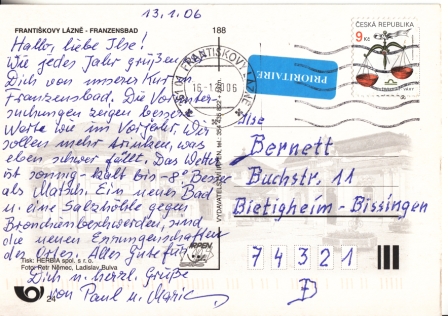 13.1.06
FRANTIŠKOVY LÁZNĚ - FRANZENSBAD
188
Hallo, liebe Ilse!
Wie jedes Jahr grüßen
Dich von unserer Kur in
Franzensbad. Die Vorunter-
suchungen zeigen bessere
Werte wie im Vorjahr. Wir
sollen mehr trinken, was
eben schwer fällt. Das Wetter
ist sonnig-kalt bis -8° Besser
als Matsch. Ein neues Bad
u. eine Salzhöhle gegen
Bronchialbeschwerden, sind
die neuen Errungenschaften
des Ortes. Alles Gute für
Dich u. herzl. Grüße
von Paul u. Marie
Tisk: HERBIA spol. s r. o.
Foto: Petr Němec, Ladislav Bulva
24
IRPEN
FRANTIŠKOVY LÁZNĚ
16.-1.-06
PRIORITAIRE
ČESKÁ REPUBLIKA
9 Kč
Ilse
Bernett
Buchstr. 11
Bietigheim-Bissingen
74321
D